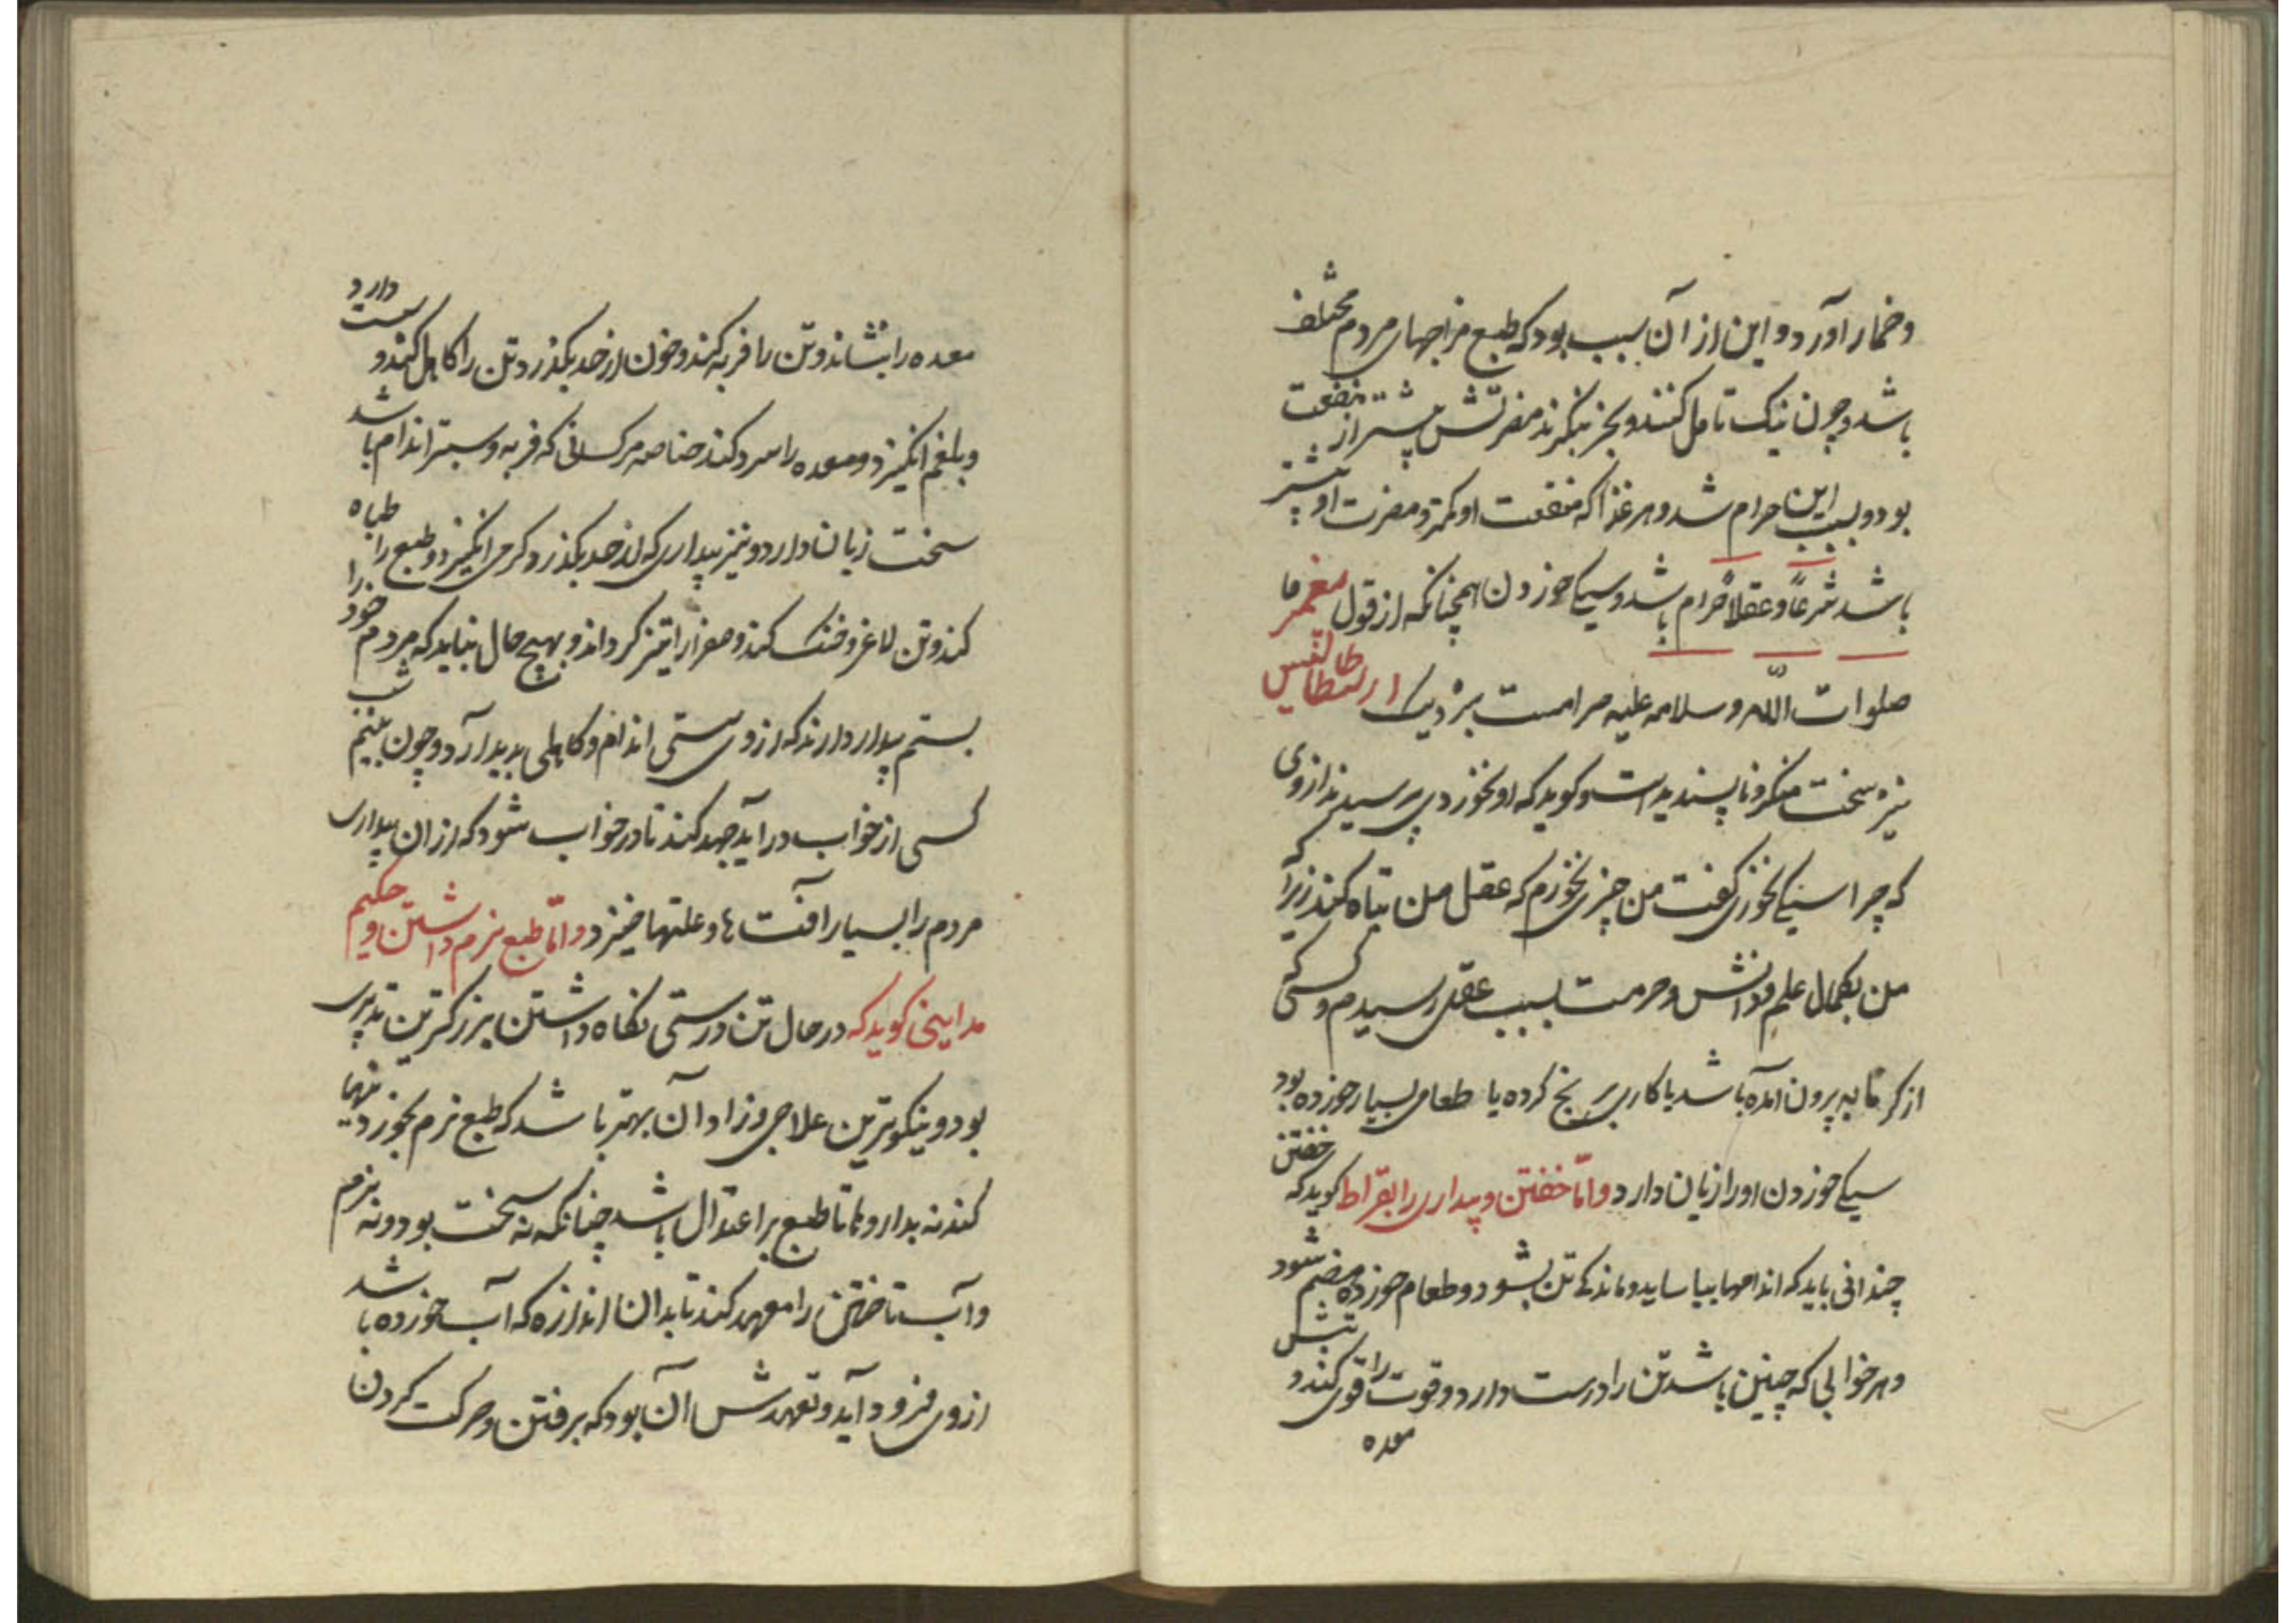 وخمار آورد و این از آن سبب بود که طبع مزاجهای مردم مختلف
باشد و چون نیک تامل کنند و بخر بنگرند مضرتش بیشتر از منفعت
بود و بسبب این حرام شد و هر غذا که منفعت او کمتر و مضرت او بیشتر
باشد شرعاً و عقلاً حرام باشد و سیکی خوردن همچنانکه از قول پیغمبر ما
صلوات الله و سلامه علیه حرامست بنزدیک ارسطاطالیس
نیز سخت منکر و ناپسندیده است و کوید که او نخوردی پرسیدند از وی
که چرا سیکی نخوری کفت من چیزی نخورم که عقل من تباه کند زیرا که
من بکمال علم و دانش و حرمت بسبب عقل رسیدم و کسی کی
از کرمابه بیرون آمده باشد یا کاری برنج کرده یا طعامی بسیار خورده بود
سیکی خوردن او را زیان دارد و امّا خفتن و بیداری را بقراط کوید که خفتن
چندانی باید که اندامها بیاساید و ماندکی تن بشود و طعام خورده هضم شود
و هر خوابی که چنین باشد تن را درست دارد و قوت را قوی کند و تبش
معده
معده را بنشاند و تن را فربه کند و خون از حد بکذرد تن را کاهل کند و سست دارد
و بلغم انکیزد و معده را سرد کند خاصه مر کسانی که فربه و ستبر اندام باشد
سخت زیان دارد و نیز بیداری که از حد بکذرد کرمی انکیزد و طبع را طباه
کند و تن لاغر و خشک کند و صفرا را تیز کرداند و بهیچ حال نباید که مردم خود را
بستم بیدار دارند که از وی سستی اندام و کاهلی پدیدار آرد و چون بنیم شب
کسی از خواب در آید جهد کند تا در خواب شود که از آن بیداری
مردم را بسیار آفت ها و علتها خیزد و امّا طبع نرم داشتن و حکیم
مداینی کوید که در حال تن درستی نکاه داشتن بزرکترین تدبیری
بود و نیکوترین علاجی و زاو آن بهتر باشد که طبع نرم بخوردنیها
کند نه بداروها تا طبع بر اعتدال باشد چنانکه نه سخت بود و نه نرم
و آب تاختن را معهد کند تا بدان اندازه که آب خورده باشد
از وی فرود آید و تعهدش آن بود که برفتن و حرکت کردن